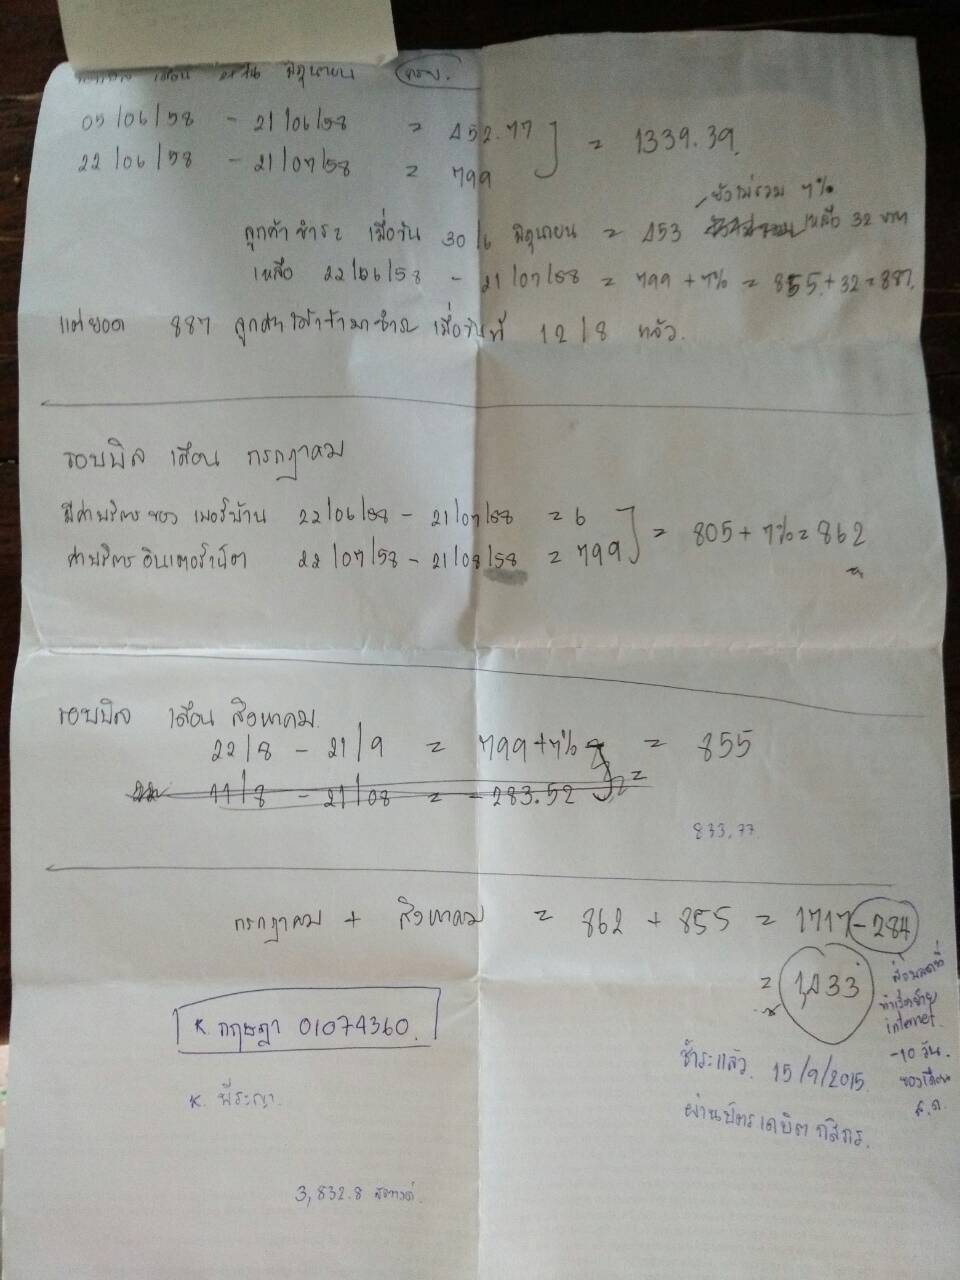 เดือน มิถุนายน
05/06/58 - 21/06/58 = 452.77
22/06/58 - 21/07/58 = 799
= 1339.39
ยังไม่รวม 7%
ลูกค้าชำระ เมื่อวัน 30/6 มิถุนายน = 453 เหลือ 32 บาท
เหลือ 22/06/58 - 21/07/58 = 799 + 7% = 855 + 32 = 887
แต่ยอด 887 ลูกค้า เข้ามาชำระ เมื่อวันที่ 12/8 แล้ว.
รอบบิล เดือน กรกฎาคม
มีค่าบริการของ เบอร์บ้าน 22/06/58 - 21/07/58 = 6
ค่าบริการ อินเตอร์เน็ต 22/07/58 - 21/08/58 = 799
= 805 + 7% = 862
รอบบิล เดือน สิงหาคม.
22/8 - 21/9 = 799+7% = 855
11/8 - 21/08 = -283.52 =
833.77
กรกฎาคม + สิงหาคม = 862 + 855 = 1717 - 284
= 1,433
ส่วนลดที่
internet
-10 วัน.
ของเดือน
ส.ค.
K กฤษฎา 01074360.
ชำระแล้ว. 15/9/2015.
ผ่านบัตรเดบิต กสิกร.
K. พีระญา.
3,832.8